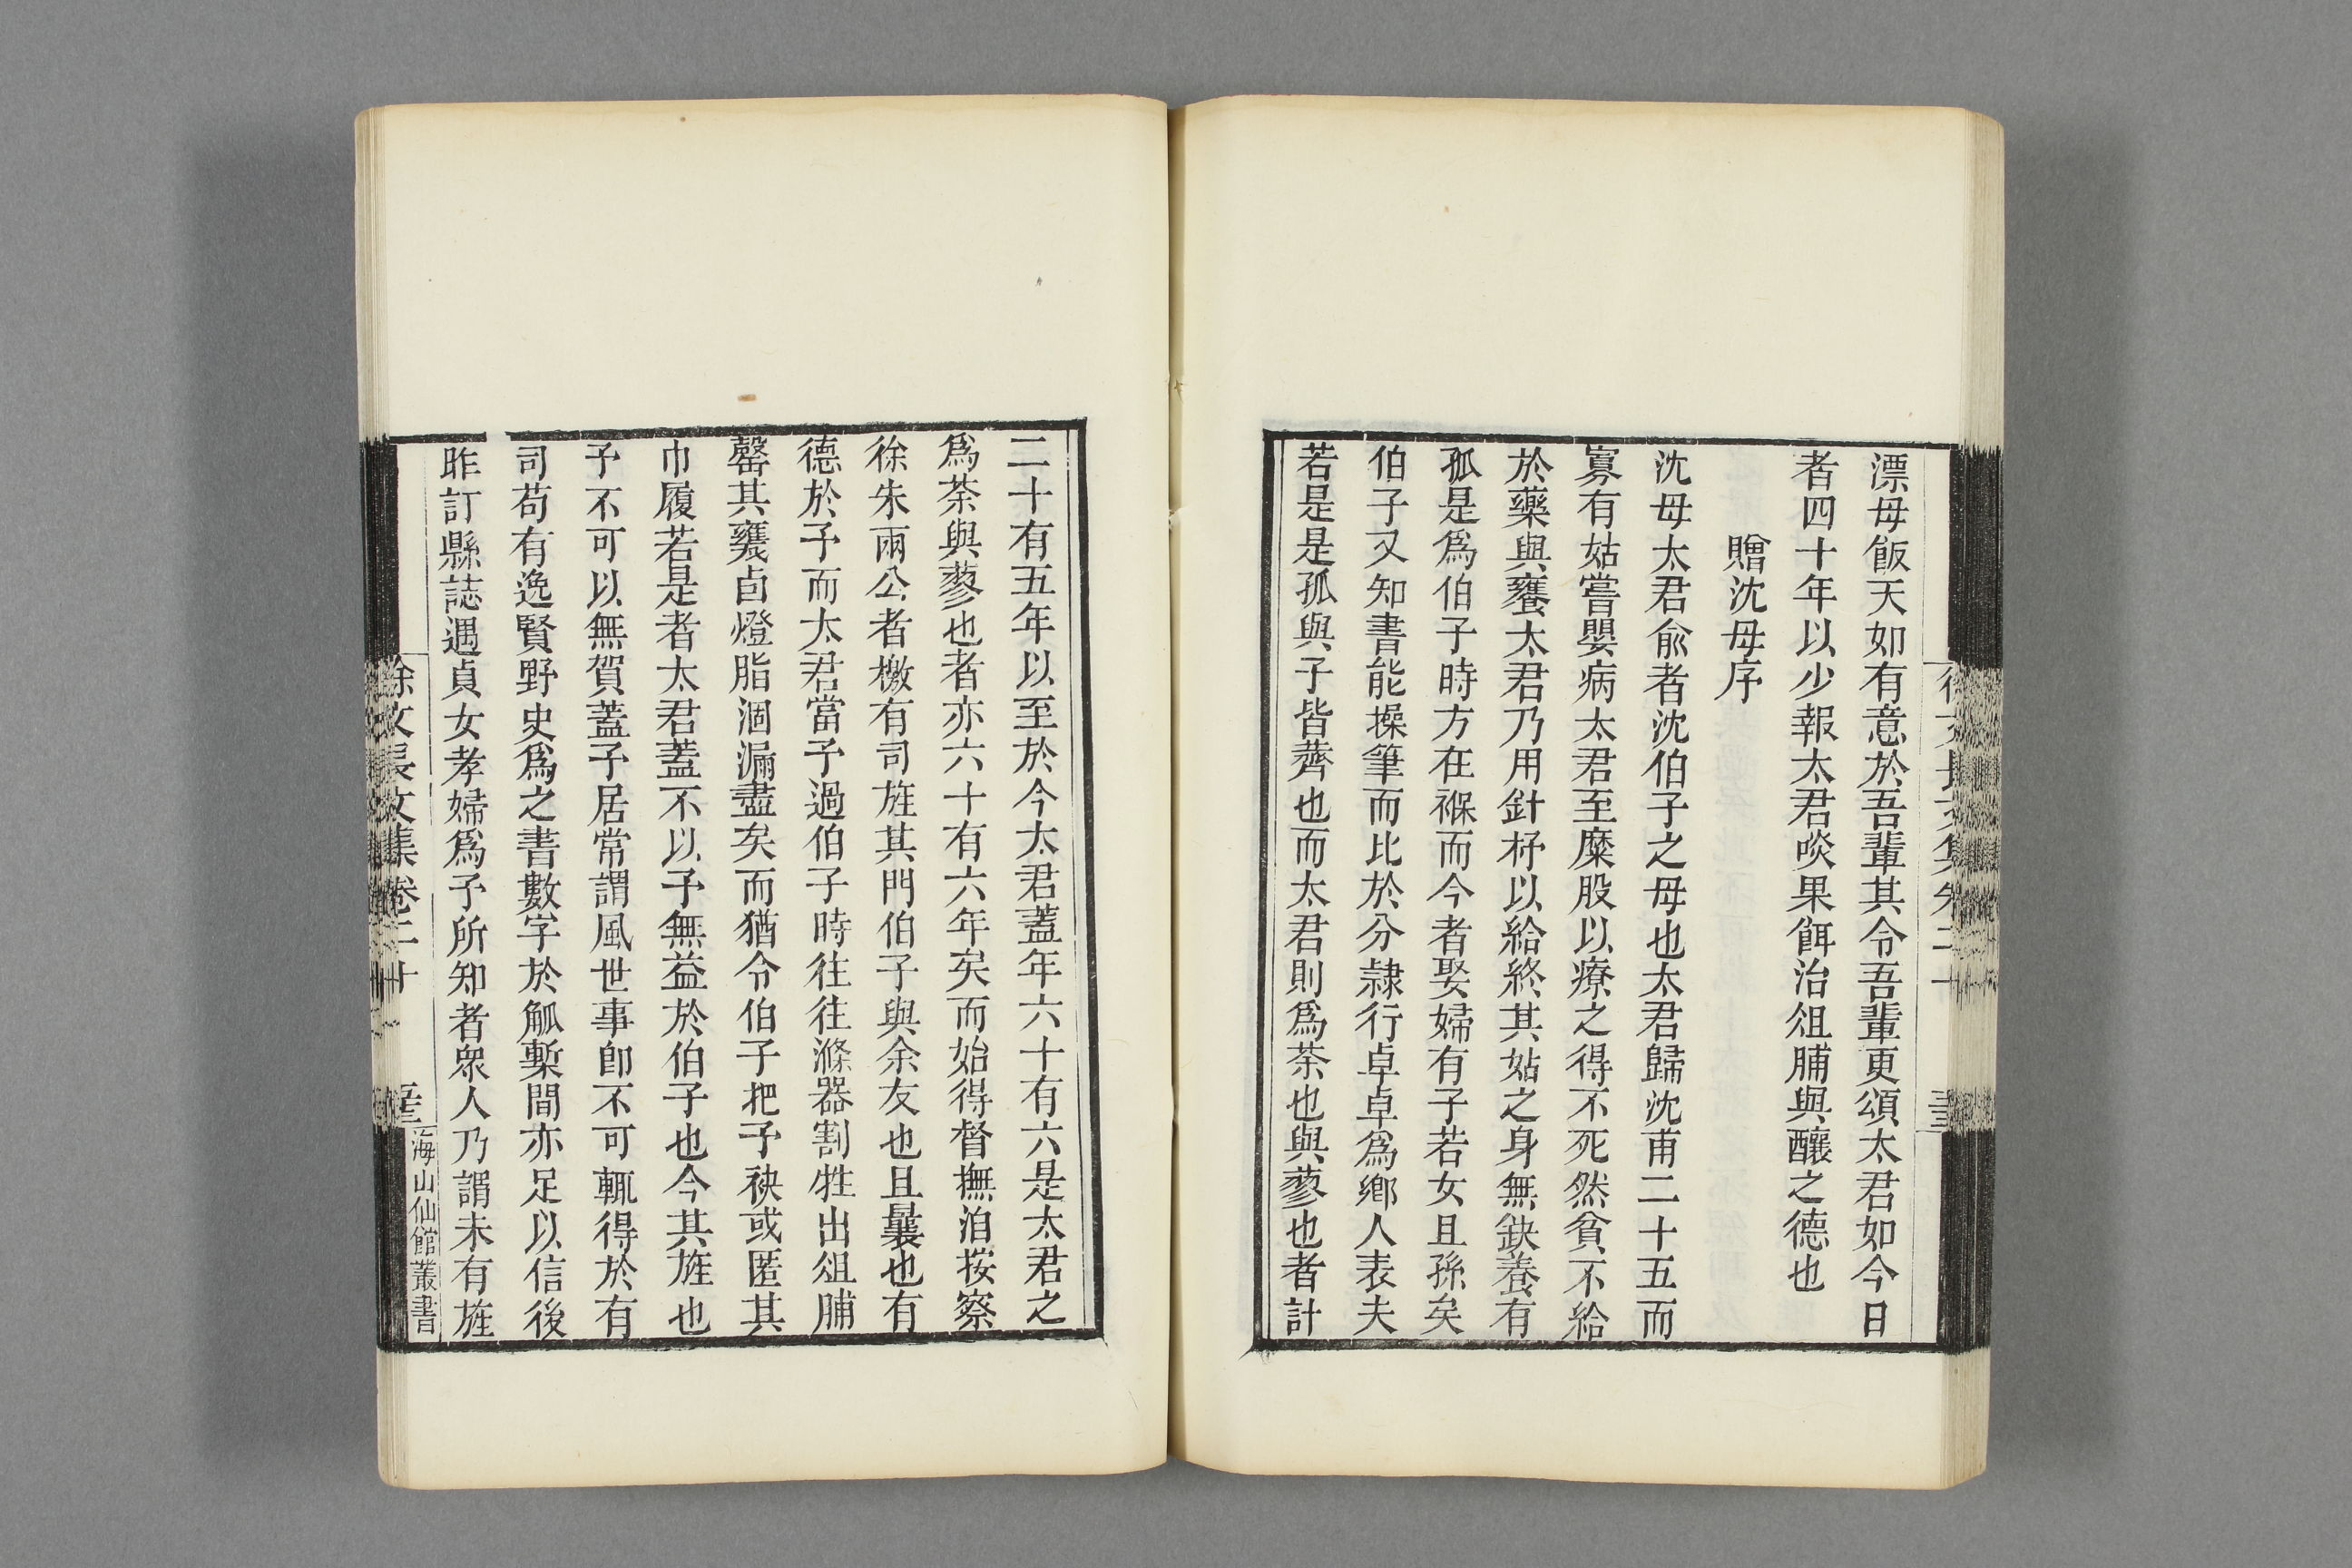 漂母飯天如有意於吾輩其令吾輩更頌太君如今日
者四十年以少報太君啖果餌治俎脯與釀之德也
贈沈母序
沈母太君俞者沈伯子之母也太君歸沈甫二十五而
寡有姑嘗嬰病太君至糜股以療之得不死然貧不給
於藥與饔太君乃用針杼以給終其姑之身無缺養有
孤是爲伯子時方在褓而今者娶婦有子若女且孫矣
伯子又知書能操筆而比於分隷行卓卓爲鄉人表夫
若是是孤與子皆薺也而太君則爲荼也與蓼也者計
二十有五年以至於今太君蓋年六十有六是太君之
爲荼與蓼也者亦六十有六年矣而始得督撫洎按察
徐朱兩公者檄有司旌其門伯子與余友也且曩也有
德於予而太君當予過伯子時往往滌器割牲出俎脯
罄其甕卣燈脂涸漏盡矣而猶令伯子把予袂或匿其
巾履若是者太君蓋不以予無益於伯子也今其旌也
予不可以無賀蓋予居常謂風世事卽不可輒得於有
司苟有逸賢野史爲之書數字於觚槧間亦足以信後
昨訂縣誌遇貞女孝婦爲予所知者衆人乃謂未有旌
徐文長文集卷二十
海山仙館叢書